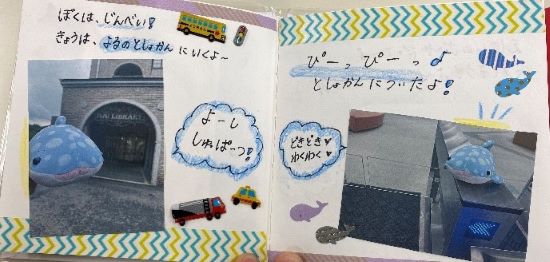 ぼくは、じんべい!
きょうは、よるのとしょかんにいくよ〜
LIBRARY
よーし
しゅぱーつ!
ぴーっぴーっ♪
としょかんについたよ!
どきどき♥
わくわく♥